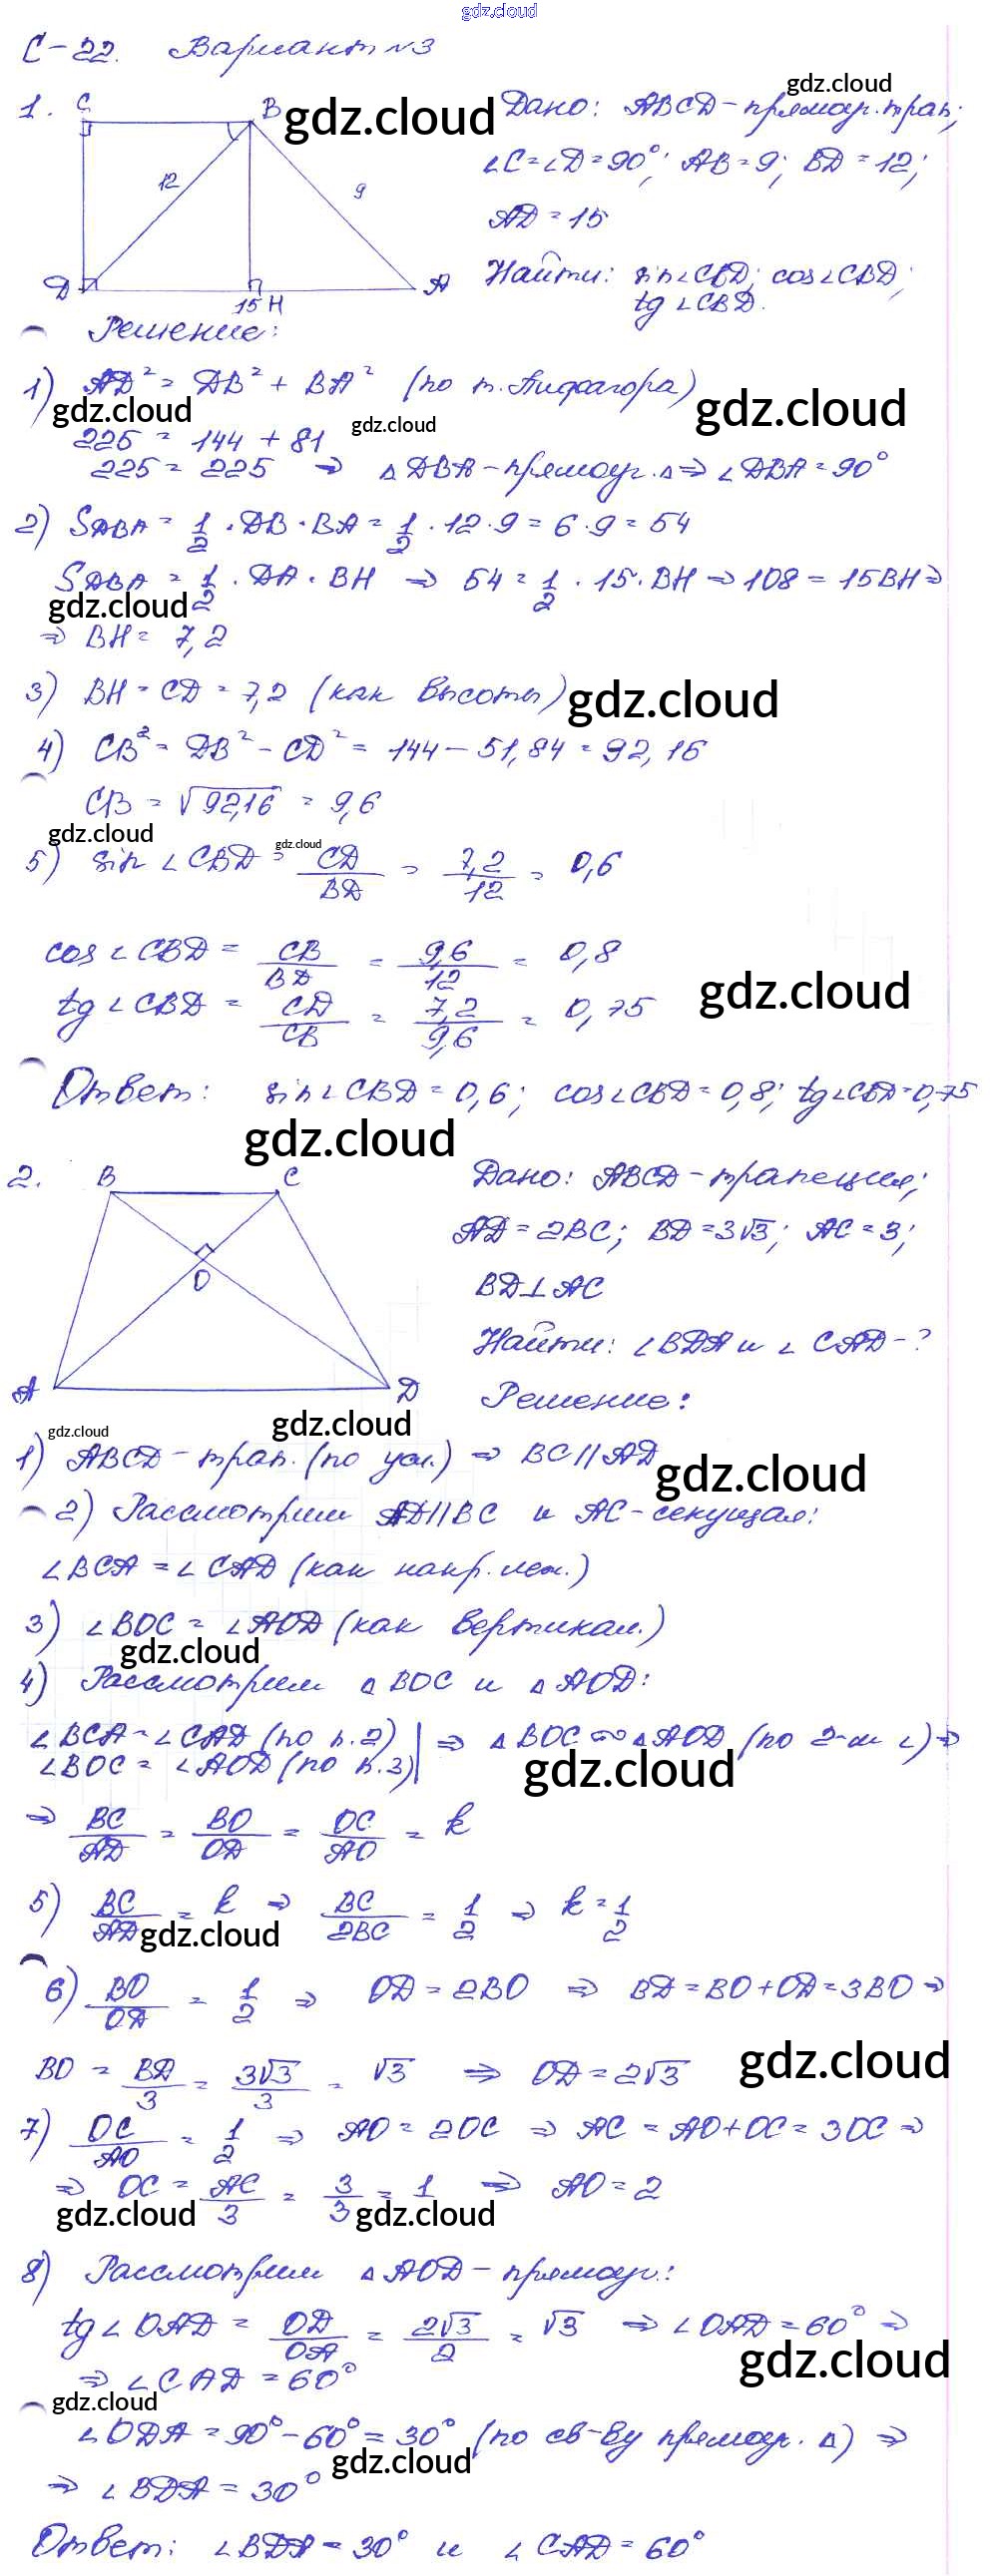 gdz.cloud
С-22. Вариант №3
gdz.cloud
1. C B gdz.cloud Дано: ABCD - прямоуг. трап;
∠C=∠D=90°; AB=9; BD=12;
12 9
AD=15
Найти: sin∠CBD; cos∠CBD;
D 15 H A
tg∠CBD.
Решение:
1) AD² = DB² + BA² (по т. Пифагора)
gdz.cloud gdz.cloud gdz.cloud
225 = 144 + 81
225 = 225 ⇒ △DBA - прямоуг. △ ⇒ ∠DBA = 90°
2) SDBA = 1/2 · DB · BA = 1/2 · 12 · 9 = 6 · 9 = 54
SDBA = 1/2 · DA · BH ⇒ 54 = 1/2 · 15 · BH ⇒ 108 = 15BH ⇒
gdz.cloud
⇒ BH = 7,2
3) BH = CD = 7,2 (как высоты) gdz.cloud
4) CB² = DB² - CD² = 144 - 51,84 = 92,16
CB = √92,16 = 9,6
gdz.cloud gdz.cloud
5) sin∠CBD = CD/BD = 7,2/12 = 0,6
cos∠CBD = CB/BD = 9,6/12 = 0,8
gdz.cloud
tg∠CBD = CD/CB = 7,2/9,6 = 0,75
Ответ: sin∠CBD=0,6; cos∠CBD=0,8; tg∠CBD=0,75
gdz.cloud
2. B C Дано: ABCD - трапеция;
AD=2BC; BD=3√3; AC=3;
O
BD⊥AC
Найти: ∠BDA и ∠CAD - ?
A D
Решение:
gdz.cloud gdz.cloud
1) ABCD - трап. (по усл.) ⇒ BC||AD
gdz.cloud
2) Рассмотрим AD||BC и AC - секущая:
∠BCA = ∠CAD (как накр. леж.)
3) ∠BOC = ∠AOD (как вертикал.)
gdz.cloud
4) Рассмотрим △BOC и △AOD:
∠BCA = ∠CAD (по п.2) | ⇒ △BOC ∾ △AOD (по 2-м ∠) ⇒
∠BOC = ∠AOD (по п.3)|
gdz.cloud
⇒ BC/AD = BO/OD = OC/AO = k
5) BC/AD = k ⇒ BC/2BC = 1/2 ⇒ k = 1/2
gdz.cloud
6) BO/OD = 1/2 ⇒ OD = 2BO ⇒ BD = BO+OD = 3BO ⇒
BO = BD/3 = 3√3/3 = √3 ⇒ OD = 2√3
gdz.cloud
7) OC/AO = 1/2 ⇒ AO = 2OC ⇒ AC = AO+OC = 3OC ⇒
⇒ OC = AC/3 = 3/3 = 1 ⇒ AO = 2
gdz.cloud gdz.cloud
8) Рассмотрим △AOD - прямоуг.:
tg∠OAD = OD/OA = 2√3/2 = √3 ⇒ ∠OAD = 60° ⇒
gdz.cloud
⇒ ∠CAD = 60°
gdz.cloud
∠ODA = 90° - 60° = 30° (по св-ву прямоуг. △) ⇒
gdz.cloud
⇒ ∠BDA = 30°
Ответ: ∠BDA = 30° и ∠CAD = 60°